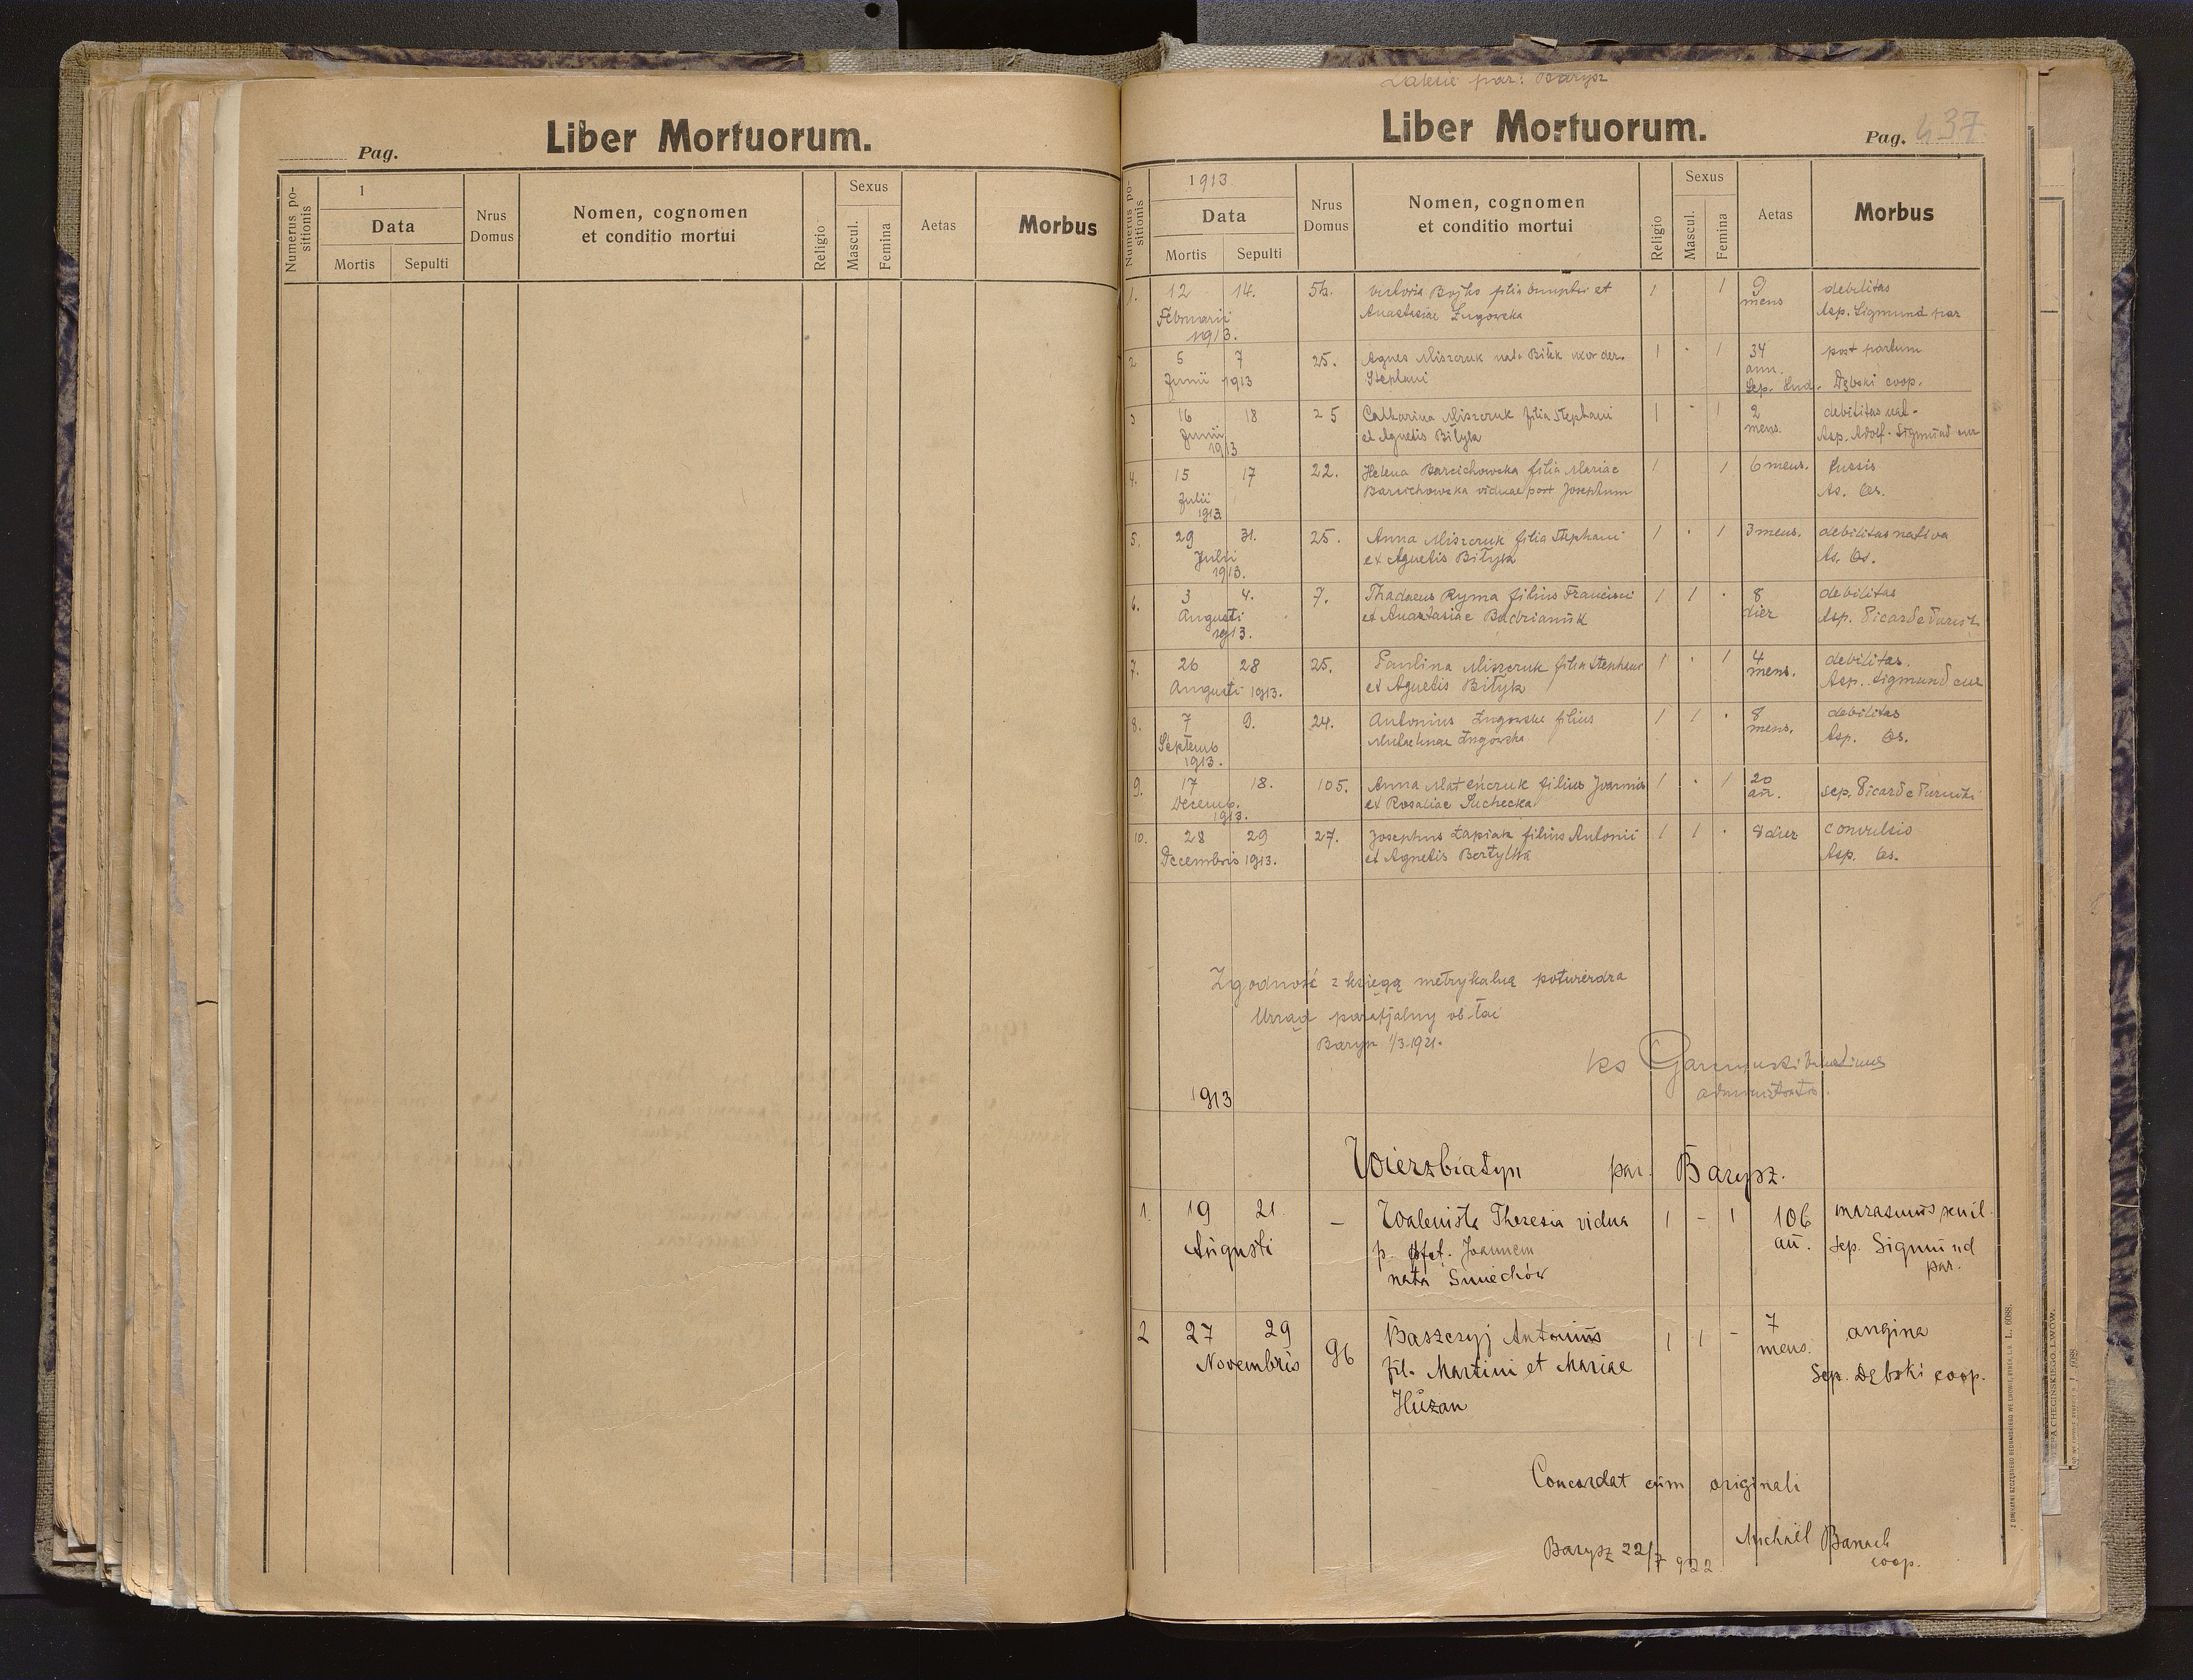 Pag.
Liber Mortuorum.
Numerus positionis
1
Data
Mortis
Sepulti
Nrus Domus
Nomen, cognomen
et conditio mortui
Religio
Sexus
Mascul.
Femina
Aetas
Morbus
par: Barysz
Liber Mortuorum.
Pag. 437
Numerus positionis
1913
Data
Mortis
Sepulti
Nrus Domus
Nomen, cognomen
et conditio mortui
Religio
Sexus
Mascul.
Femina
Aetas
Morbus
1. 12 14. Bojko filia et 1 1 9 debilitas
Februarii Anastasiae Ługowska mens Asp. Sigmund par
1913.
2 5 7 25. Agnes Miszczuk nata Bitek uxor der. 1 - 1 34 post partum
Junii 1913 Stephani ann.
Sep. Lud. Dębski coop.
3 16 18 25 Catharina Miszczuk filia Stephani 1 - 1 2 debilitas nat-
Junii et Agnetis Bityk mens. Asp. Adolf. Sigmund
1913
4. 15 17 22. Helena Barcichowska filia Mariae 1 1 6 mens. tussis
Julii Barcichowska viduae post Josephum As. Os.
1913.
5. 29 31. 25. Anna Miszczuk filia Stephani 1 . 1 3 mens. debilitas nativa
Julii et Agnetis Bityk As. Os.
1913.
6. 3 4. 7. Thadaeus Ryma filius Francisci 1 1 . 8 debilitas
Augusti et Anastasiae Badrianiuk dier Asp. Picard e
1913.
7. 26 28 25. Paulina Miszczuk filia Stephani 1 . 1 4 debilitas.
Augusti 1913. et Agnetis Bityk mens. Asp. Sigmund
8. 7 9. 24. Antonius Ługowski filius 1 1 . 8 debilitas
Septemb Ługowska mens. Asp. Os.
1913.
9. 17 18. 105. Anna Matenczuk filius Joannis 1 . 1 20 sep. Picard e
Decemb. et Rosaliae Suchecka an.
1913.
10. 28 29 27. Josephus Łapiak filius Antonii 1 1 . 8 dier convulsio
Decembris 1913. et Agnetis Bortylka Asp. Os.
Zgodność z księgą metrykalną potwierdza
Urząd parafjalny ob. łać
Barysz 1/3.1921.
ks
administrator
1913
Wierzbiatyn par. Barysz.
1. 19 21 - Walenista Theresia vidua 1 - 1 106 marasmus senil.
Augusti p. dfct. Joannem an. sep. Sigmund
nata Smiechów par.
2 27 29 96 Baszczyj Antonius 1 1 - 7 angina
Novembris fil. Martini et Mariae mens. Sep. Dębski coop.
Huzan
Concordat cum originali
Barysz 22/7 922 Michael Banach
coop.